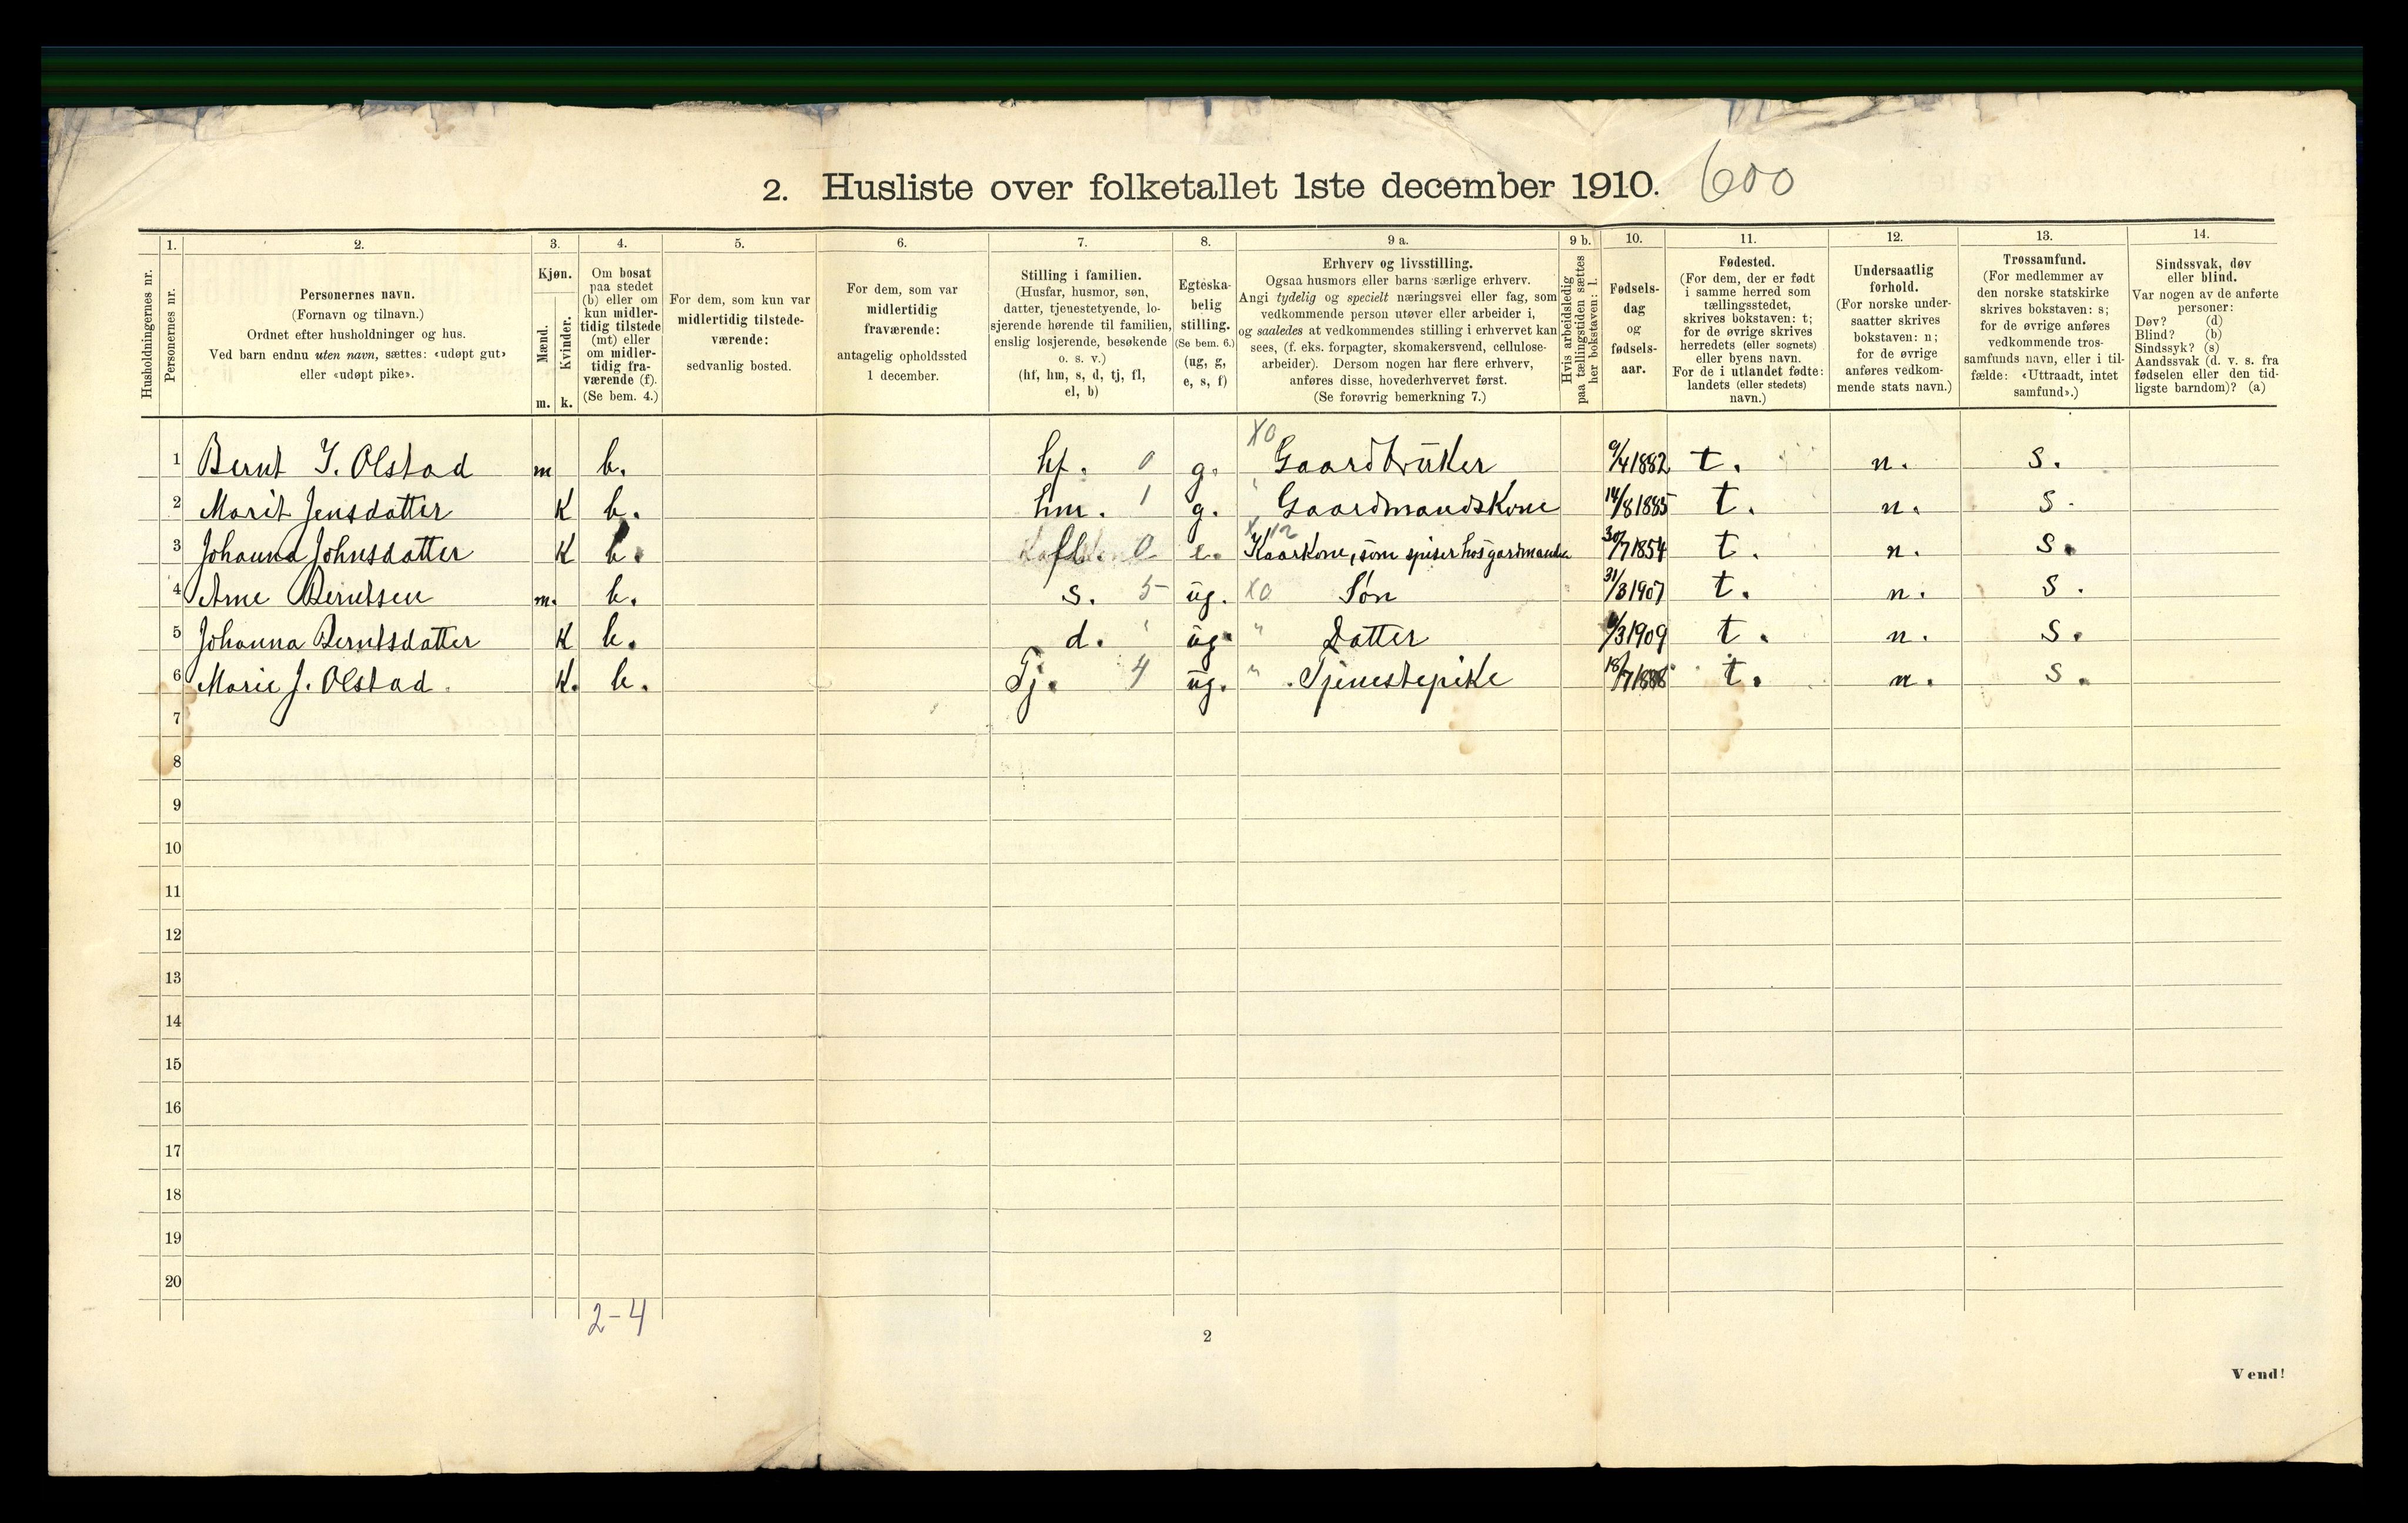 2. Husliste over folketallet 1ste december 1910. 600
Husholdningernes nr.
1.
Personernes nr.
2.
Personernes navn.
(Fornavn og tilnavn.)
Ordnet efter husholdninger og hus.
Ved barn endnu uten navn, sættes: «udøpt gut»
eller «udøpt pike».
3.
Kjøn.
Mænd.
Kvinder.
m. k.
4.
Om bosat
paa stedet
(b) eller om
kun midler-
tidig tilstede
(mt) eller
om midler-
tidig fra-
værende (f).
(Se bem. 4.)
5.
For dem, som kun var
midlertidig tilstede-
værende:
sedvanlig bosted.
6.
For dem, som var
midlertidig
fraværende:
antagelig opholdssted
1 december.
7.
Stilling i familien.
(Husfar, husmor, søn,
datter, tjenestetyende, lo-
sjerende hørende til familien,
enslig losjerende, besøkende
o. s. v.)
(hf, hm, s, d, tj, fl,
el, b)
8.
Egteska-
belig
stilling.
(Se bem. 6.)
(ug, g,
e, s, f)
9 a.
Erhverv og livsstilling.
Ogsaa husmors eller barns særlige erhverv.
Angi tydelig og specielt næringsvei eller fag, som
vedkommende person utøver eller arbeider i,
og saaledes at vedkommendes stilling i erhvervet kan
sees, (f. eks. forpagter, skomakersvend, cellulose-
arbeider). Dersom nogen har flere erhverv,
anføres disse, hovederhvervet først.
(Se forøvrig bemerkning 7.)
9 b.
Hvis arbeidsledig
paa tællingstiden sættes
her bokstaven: l.
10.
Fødsels-
dag
og
fødsels-
aar.
11.
Fødested.
(For dem, der er født
i samme herred som
tællingsstedet,
skrives bokstaven: t;
for de øvrige skrives
herredets (eller sognets)
eller byens navn.
For de i utlandet fødte:
landets (eller stedets)
navn.)
12.
Undersaatlig
forhold.
(For norske under-
saatter skrives
bokstaven: n;
for de øvrige
anføres vedkom-
mende stats navn.)
13.
Trossamfund.
(For medlemmer av
den norske statskirke
skrives bokstaven: s;
for de øvrige anføres
vedkommende tros-
samfunds navn, eller i til-
fælde: «Uttraadt, intet
samfund».)
14.
Sindssvak, døv
eller blind.
Var nogen av de anførte
personer:
Døv? (d)
Blind? (b)
Sindssyk? (s)
Aandssvak (d. v. s. fra
fødselen eller den tid-
ligste barndom)? (a)
1 Bernt J. Olstad m b. hf. 0 g. X0 Gaardbruker 9/4 1882 t. n. s.
2 Marit Jensdatter K b. hm. 1 g. " Gaardmandskone 14/8 1885 t. n. s.
3 Johanna Johnsdatter K b. fl. 0 e. X 12 Kaarkone, som spiser hos gardmanden 30/7 1854 t. n. s.
4 Arne Berntsen m. b. s. 5 ug. X0 Søn 31/3 1907 t. n. s.
5 Johanna Berntsdatter K b. d. " ug. " Datter /3 1909 t. n. s.
6 Marie J. Olstad K. b. Tj. 4 ug. " Tjenestepike 18/7 1888 t. n. s.
7
8
9
10
11
12
13
14
15
16
17
18
19
20
2-4
2
Vend!